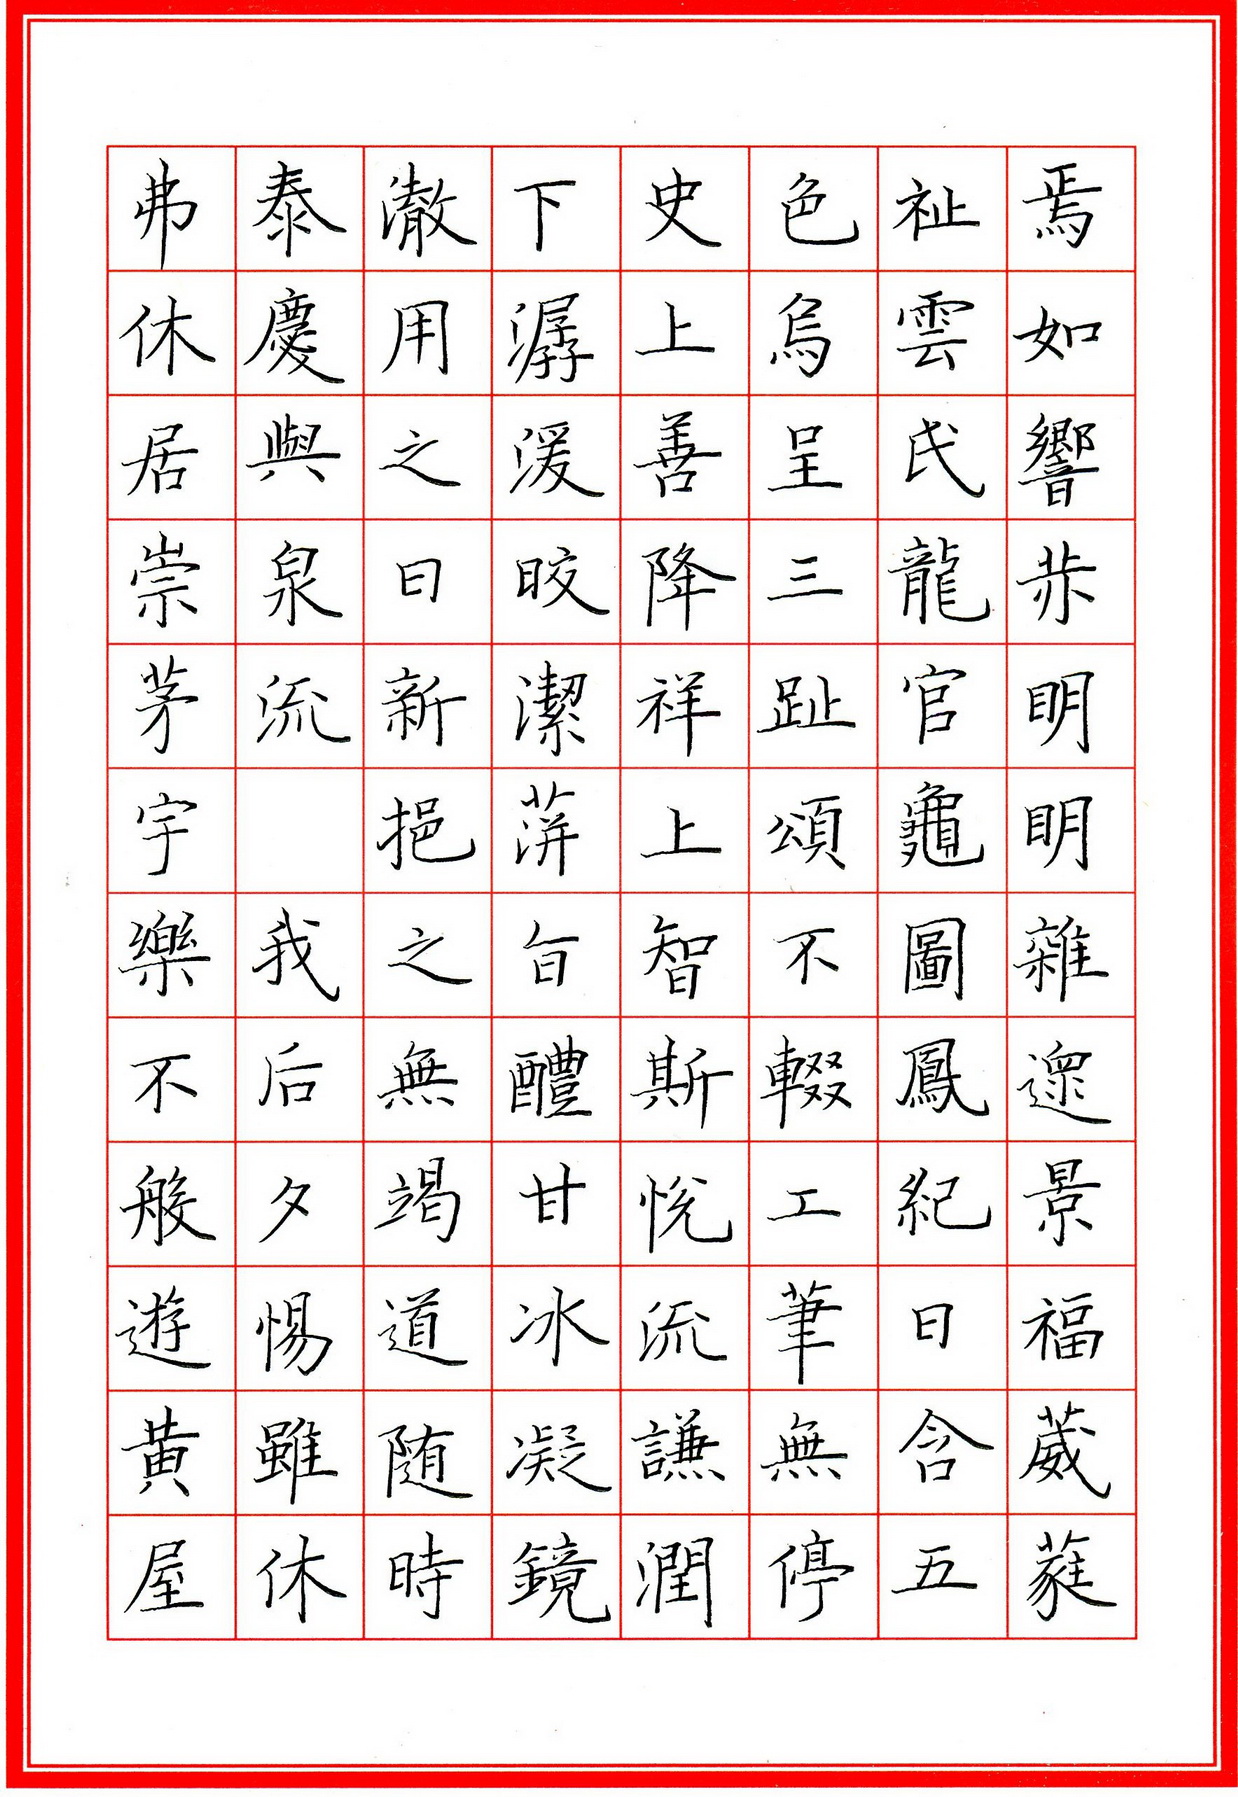 焉如響赤明明雜遝景福葳蕤
祉雲氏龍官龜圖鳳紀日含五
色烏呈三趾頌不輟工筆無停
史上善降祥上智斯悅流謙潤
下潺湲皎潔蓱旨醴甘冰凝鏡
澈用之日新挹之無竭道随時
泰慶與泉流 我后夕惕雖休
弗休居崇茅宇樂不般遊黄屋